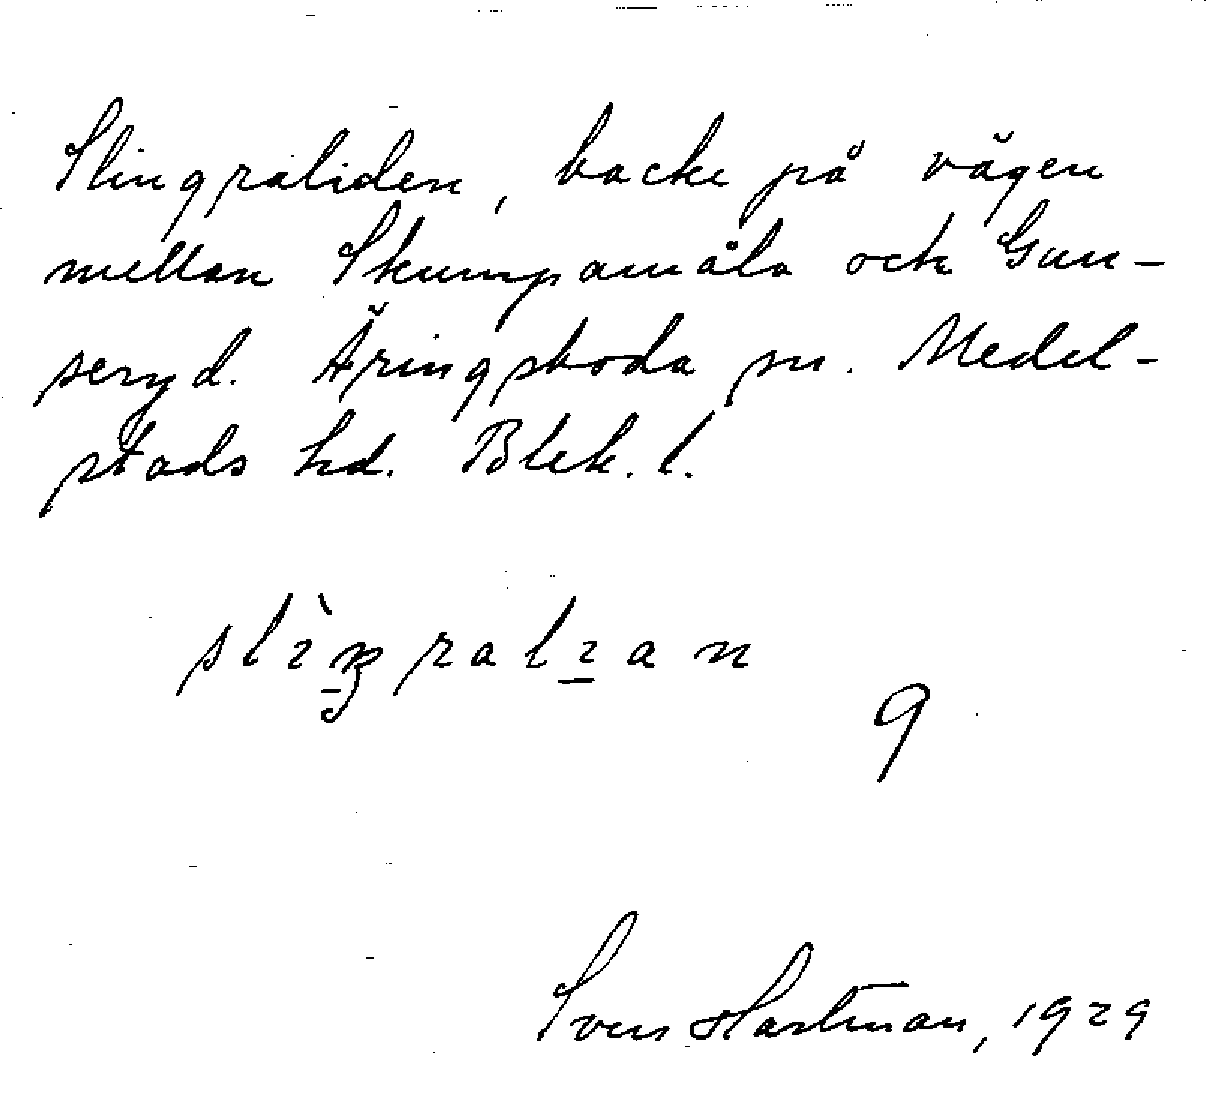 Slingraliden, backe på vägen
mellan Skumpamåla och Gun-
seryd. Äringsboda sn. Medel-
stads hd. Blek. l.
9
Sven Hartman, 1929